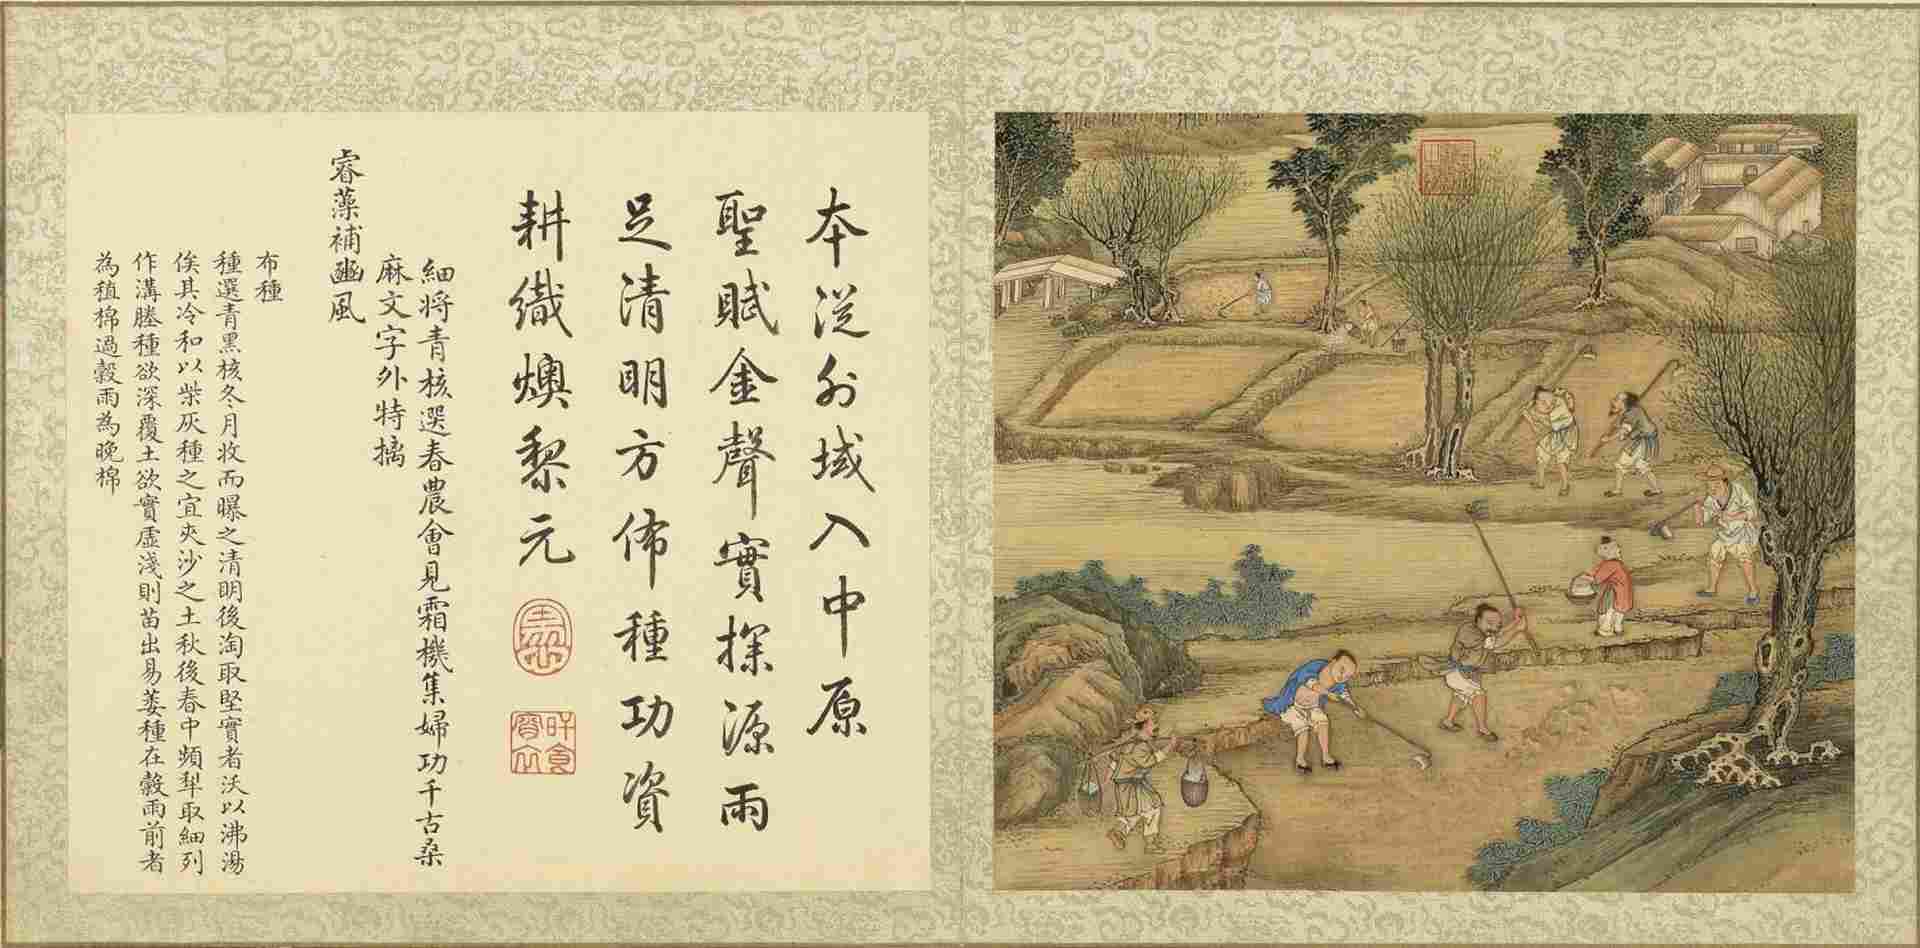 本從外域入中原
聖賦金聲實探源雨
足清明方佈種功資
耕織燠黎元
旰食
宵衣
細將青核選春農會見霜機集婦功千古桑
麻文字外特摛
睿藻補豳風
布種
種選青黑核冬月收而曝之清明後淘取堅實者沃以沸湯
俟其冷和以柴灰種之宜夾沙之土秋後春中頻犁取細列
作溝塍種欲深覆土欲實虛淺則苗出易萎種在穀雨前者
為植棉過穀雨為晚棉